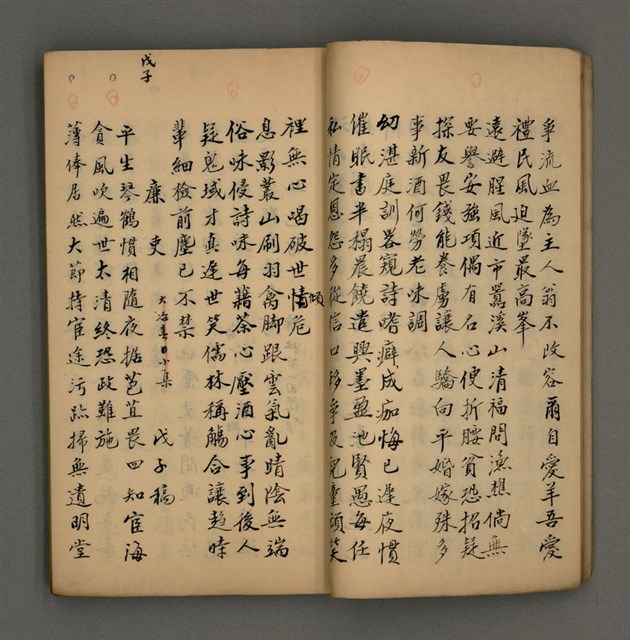 爭流血為主人翁不改容爾自愛羊吾愛
禮民風迫墜最高峯
遠避腥風近市囂溪山清福問漁樵倘無
要譽安強項偶有名心便折腰貧恐招疑
探友畏錢能養虜讓人驕向平婚嫁殊多
事新酒何勞老味調
幼湛庭訓畧窺詩嗜癖成痂悔已遲夜慣
催眠書半榻晨饒遣興墨盈池賢愚每任
私情定恩怨多從信口移爭及兒童頭笑
裡無心喝破世情危
傾
息影叢山刷羽禽脚跟雲氣亂晴陰無端
俗味侵詩味每藉茶心壓酒心事到後人
疑鬼域才真逢世笑儒林稱觴合讓趍時
輩細檢前塵已不禁
廉吏
大冶春日小集
戊子稿
平生琴鶴慣相隨夜拒苞苴畏四知宦海
貪風吹遍世太清終恐政難施
薄俸居然大節持宦途污跡掃無遺明堂
戊子